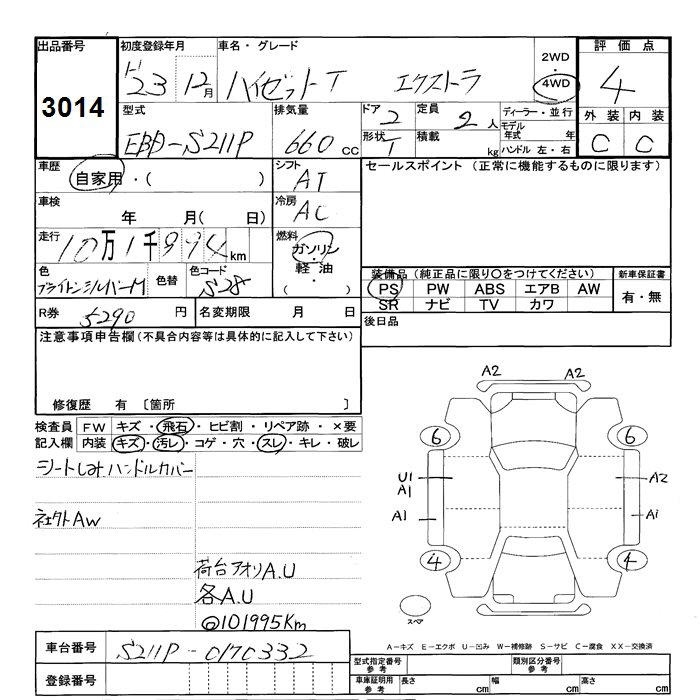 出品番号
3014
初度登録年月
H 23 12月
車名・グレード
ハイゼットT エクストラ
2WD
・
4WD
評価点
4
外装 内装
C C
型式
EBD-S211P
排気量
660 cc
ドア 2
形状 T
定員 2 人
積載 kg
ディーラー・並行
モデル年式 年
ハンドル 左・右
車歴
自家用・( )
シフト
AT
車検
年 月( 日)
冷房
AC
走行
10万1千994 km
燃料
ガソリン
・
軽油
( ・ )
色
ブライトンシルバーM
色替
色コード
S28
R券 5290 円
名変期限 月 日
セールスポイント (正常に機能するものに限ります)
装備品 (純正品に限り○をつけてください)
PS PW ABS エアB AW
SR ナビ TV カワ
新車保証書
有・無
後日品
注意事項申告欄(不具合内容等は具体的に記入して下さい)
修復歴 有 〔箇所 〕
検査員記入欄
FW キズ・飛石・ヒビ割・リペア跡・×要
内装 キズ・汚レ・コゲ・穴・スレ・キレ・破レ
シートしみ ハンドルカバー
社外AW
荷台アオリA.U
各A.U
@101995Km
A2 A2
6 6
U1
A1
A2
A1 A1
4 4
スペア
A-キズ E-エクボ U-凹み W-補修跡 S-サビ C-腐食 XX-交換済
車台番号 S211P-0170332
登録番号
型式指定番号 参考
類別区分番号 参考
車庫証明用 参考
長さ cm 幅 cm 高さ cm